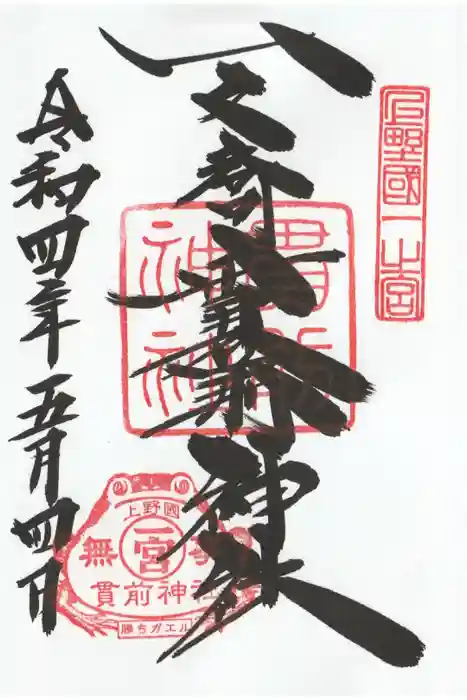 上野國一之宮
一之宮貫前神社
貫前神社
上野國
一宮
無事
貫前神社
勝ちガエル
令和四年五月四日